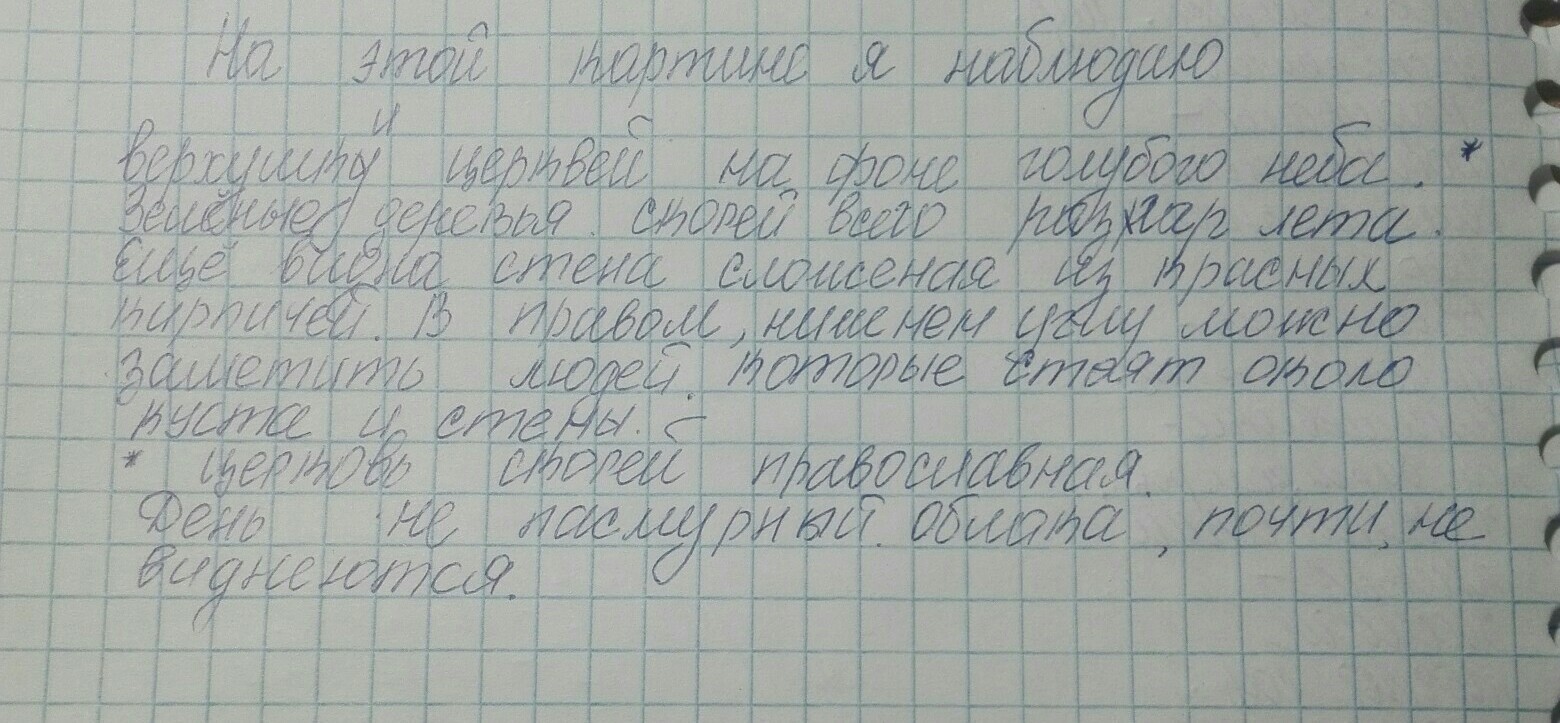 На этой картине я наблюдаю
и
верхушку церквей на фоне голубого неба. *
Зелёные деревья. скорей всего разгар лета.
Ещё видна стена сложеная из красных
кирпичей. В правом, нижнем углу можно
заметить людей. которые стоят около
куста и стены. –
* церковь скорей православная.
День не пасмурный. Облака, почти, не
виднеются.